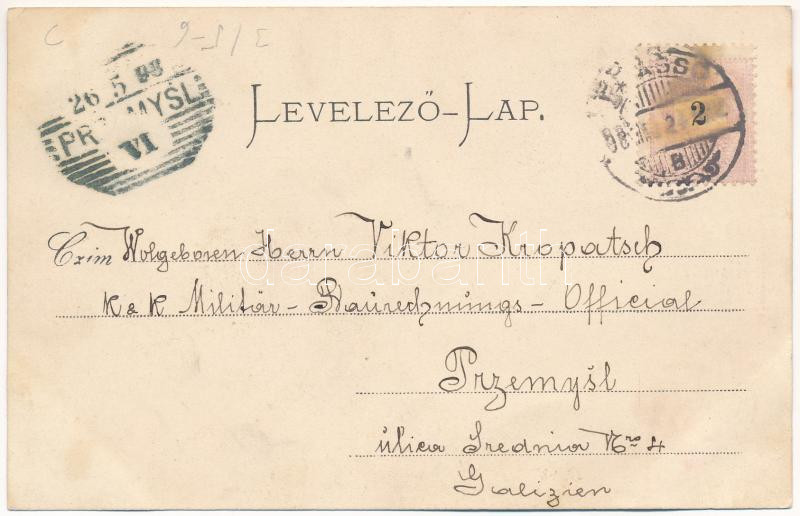 26 5 98
PRZEMYŚL
VI
LEVELEZŐ-LAP.
BRASSÓ
2
B
Czim Wolgeboren Herrn Viktor Kropatsch
K & K Militär - Baurechnungs - Official
Przemyśl
ulica Srednia Nro 4
Galizien
darabanth